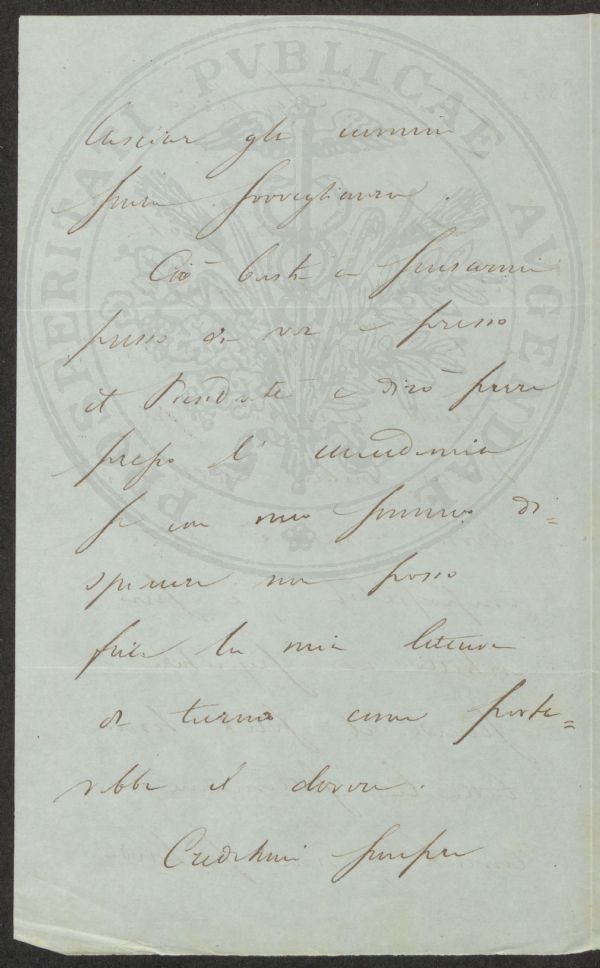 lasciar gli uomini
senza sorveglianza.
Ciò basti a scusarmi
presso di voi e presso
il Presidente e dirò pure
presso l'accademia
se con mio sommo di=
spiacere non posso
fare la mia lettura
di turno come porte=
rebbe il dovere.
Credetemi sempre
PROSPERITATI PVBLICAE AVGENDAE